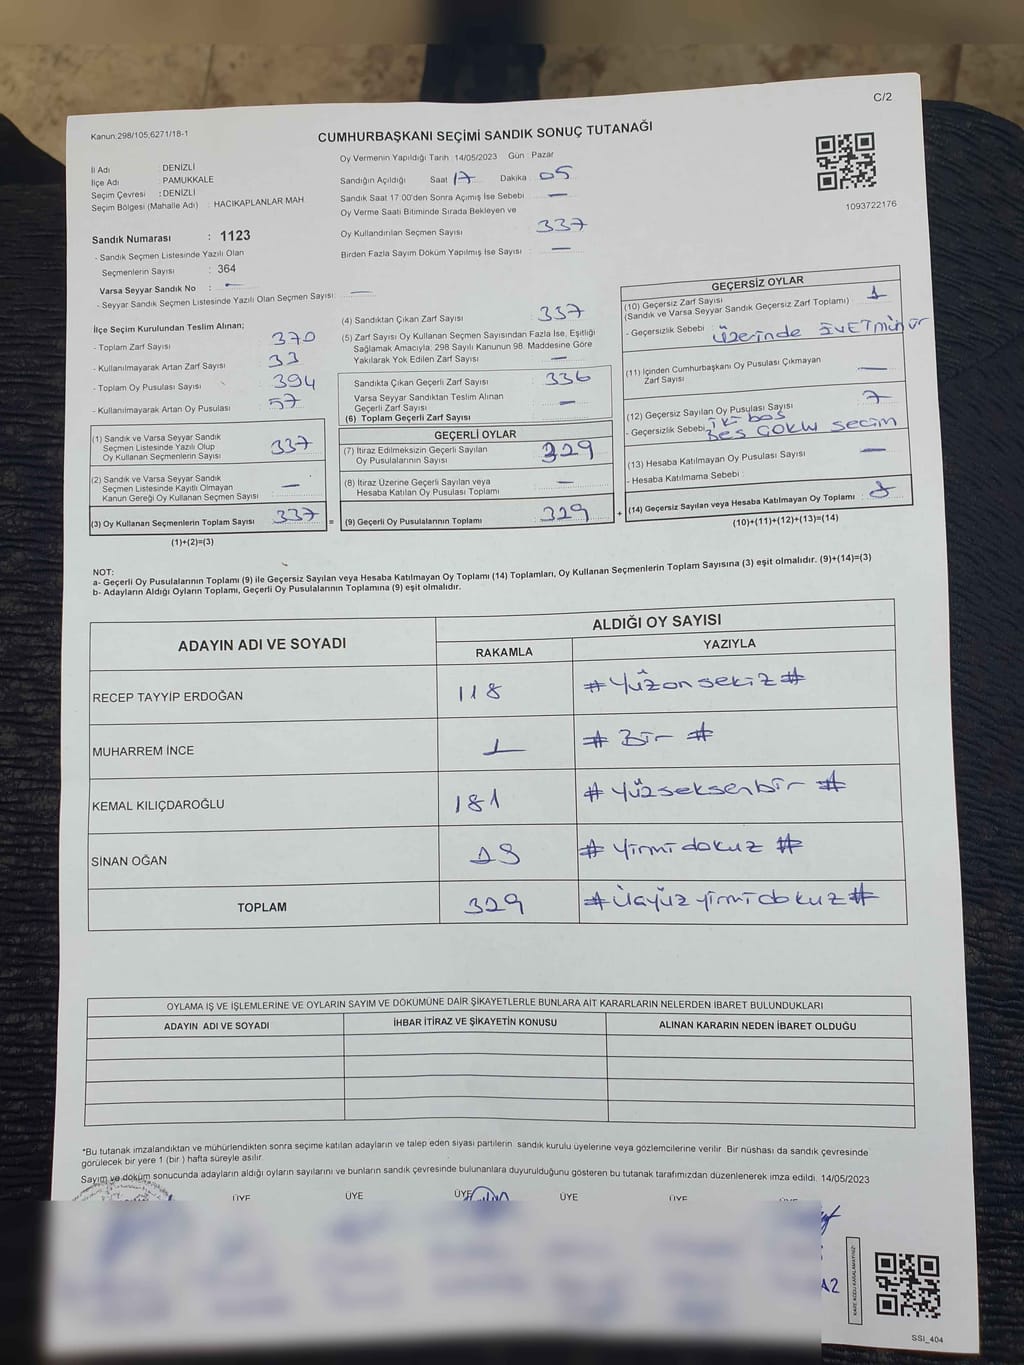 C/2
Kanun.298/105,6271/18-1
CUMHURBAŞKANI SEÇİMİ SANDIK SONUÇ TUTANAĞI
İl Adı : DENİZLİ
İlçe Adı : PAMUKKALE
Seçim Çevresi : DENİZLİ
Seçim Bölgesi (Mahalle Adı) : HACIKAPLANLAR MAH.
Oy Vermenin Yapıldığı Tarih :14/05/2023 Gün : Pazar
Sandığın Açıldığı Saat 17 Dakika 05
Sandık Saat 17:00'den Sonra Açılmış İse Sebebi —
Oy Verme Saati Bitiminde Sırada Bekleyen ve
Oy Kullandırılan Seçmen Sayısı 337
Birden Fazla Sayım Döküm Yapılmış İse Sayısı : —
1093722176
Sandık Numarası : 1123
- Sandık Seçmen Listesinde Yazılı Olan
Seçmenlerin Sayısı : 364
Varsa Seyyar Sandık No : —
- Seyyar Sandık Seçmen Listesinde Yazılı Olan Seçmen Sayısı: —
İlçe Seçim Kurulundan Teslim Alınan;
- Toplam Zarf Sayısı 370
- Kullanılmayarak Artan Zarf Sayısı 33
- Toplam Oy Pusulası Sayısı 394
- Kullanılmayarak Artan Oy Pusulası 57
(1) Sandık ve Varsa Seyyar Sandık
Seçmen Listesinde Yazılı Olup
Oy Kullanan Seçmenlerin Sayısı 337
(2) Sandık ve Varsa Seyyar Sandık
Seçmen Listesinde Kayıtlı Olmayan
Kanun Gereği Oy Kullanan Seçmen Sayısı —
(3) Oy Kullanan Seçmenlerin Toplam Sayısı 337
(1)+(2)=(3)
(4) Sandıktan Çıkan Zarf Sayısı 337
(5) Zarf Sayısı Oy Kullanan Seçmen Sayısından Fazla İse, Eşitliği
Sağlamak Amacıyla; 298 Sayılı Kanunun 98. Maddesine Göre
Yakılarak Yok Edilen Zarf Sayısı —
Sandıkta Çıkan Geçerli Zarf Sayısı 336
Varsa Seyyar Sandıktan Teslim Alınan
Geçerli Zarf Sayısı —
(6) Toplam Geçerli Zarf Sayısı
GEÇERLİ OYLAR
(7) İtiraz Edilmeksizin Geçerli Sayılan
Oy Pusulalarının Sayısı 329
(8) İtiraz Üzerine Geçerli Sayılan veya
Hesaba Katılan Oy Pusulası Toplamı —
= (9) Geçerli Oy Pusulalarının Toplamı 329
GEÇERSİZ OYLAR
(10) Geçersiz Zarf Sayısı
(Sandık ve Varsa Seyyar Sandık Geçersiz Zarf Toplamı) 1
- Geçersizlik Sebebi : üzerinde EVET mühür
(11) İçinden Cumhurbaşkanı Oy Pusulası Çıkmayan
Zarf Sayısı —
(12) Geçersiz Sayılan Oy Pusulası Sayısı 7
iki boş
- Geçersizlik Sebebi: Beş çoklu seçim
(13) Hesaba Katılmayan Oy Pusulası Sayısı —
- Hesaba Katılmama Sebebi :
+ (14) Geçersiz Sayılan veya Hesaba Katılmayan Oy Toplamı 8
(10)+(11)+(12)+(13)=(14)
NOT:
a- Geçerli Oy Pusulalarının Toplamı (9) ile Geçersiz Sayılan veya Hesaba Katılmayan Oy Toplamı (14) Toplamları, Oy Kullanan Seçmenlerin Toplam Sayısına (3) eşit olmalıdır. (9)+(14)=(3)
b- Adayların Aldığı Oyların Toplamı, Geçerli Oy Pusulalarının Toplamına (9) eşit olmalıdır.
ADAYIN ADI VE SOYADI
ALDIĞI OY SAYISI
RAKAMLA YAZIYLA
RECEP TAYYİP ERDOĞAN 118 # Yüzonsekiz #
MUHARREM İNCE 1 # Bir #
KEMAL KILIÇDAROĞLU 181 # Yüzseksenbir #
SİNAN OĞAN 29 # Yirmidokuz #
TOPLAM 329 # Üçyüzyirmidokuz #
OYLAMA İŞ VE İŞLEMLERİNE VE OYLARIN SAYIM VE DÖKÜMÜNE DAİR ŞİKAYETLERLE BUNLARA AİT KARARLARIN NELERDEN İBARET BULUNDUKLARI
ADAYIN ADI VE SOYADI İHBAR İTİRAZ VE ŞİKAYETİN KONUSU ALINAN KARARIN NEDEN İBARET OLDUĞU
*Bu tutanak imzalandıktan ve mühürlendikten sonra seçime katılan adayların ve talep eden siyasi partilerin sandık kurulu üyelerine veya gözlemcilerine verilir. Bir nüshası da sandık çevresinde
görülecek bir yere 1 (bir) hafta süreyle asılır.
Sayım ve döküm sonucunda adayların aldığı oyların sayılarını ve bunların sandık çevresinde bulunanlara duyurulduğunu gösteren bu tutanak tarafımızdan düzenlenerek imza edildi. 14/05/2023
ÜYE ÜYE ÜYE ÜYE ÜYE ÜYE
A2
SSI_404